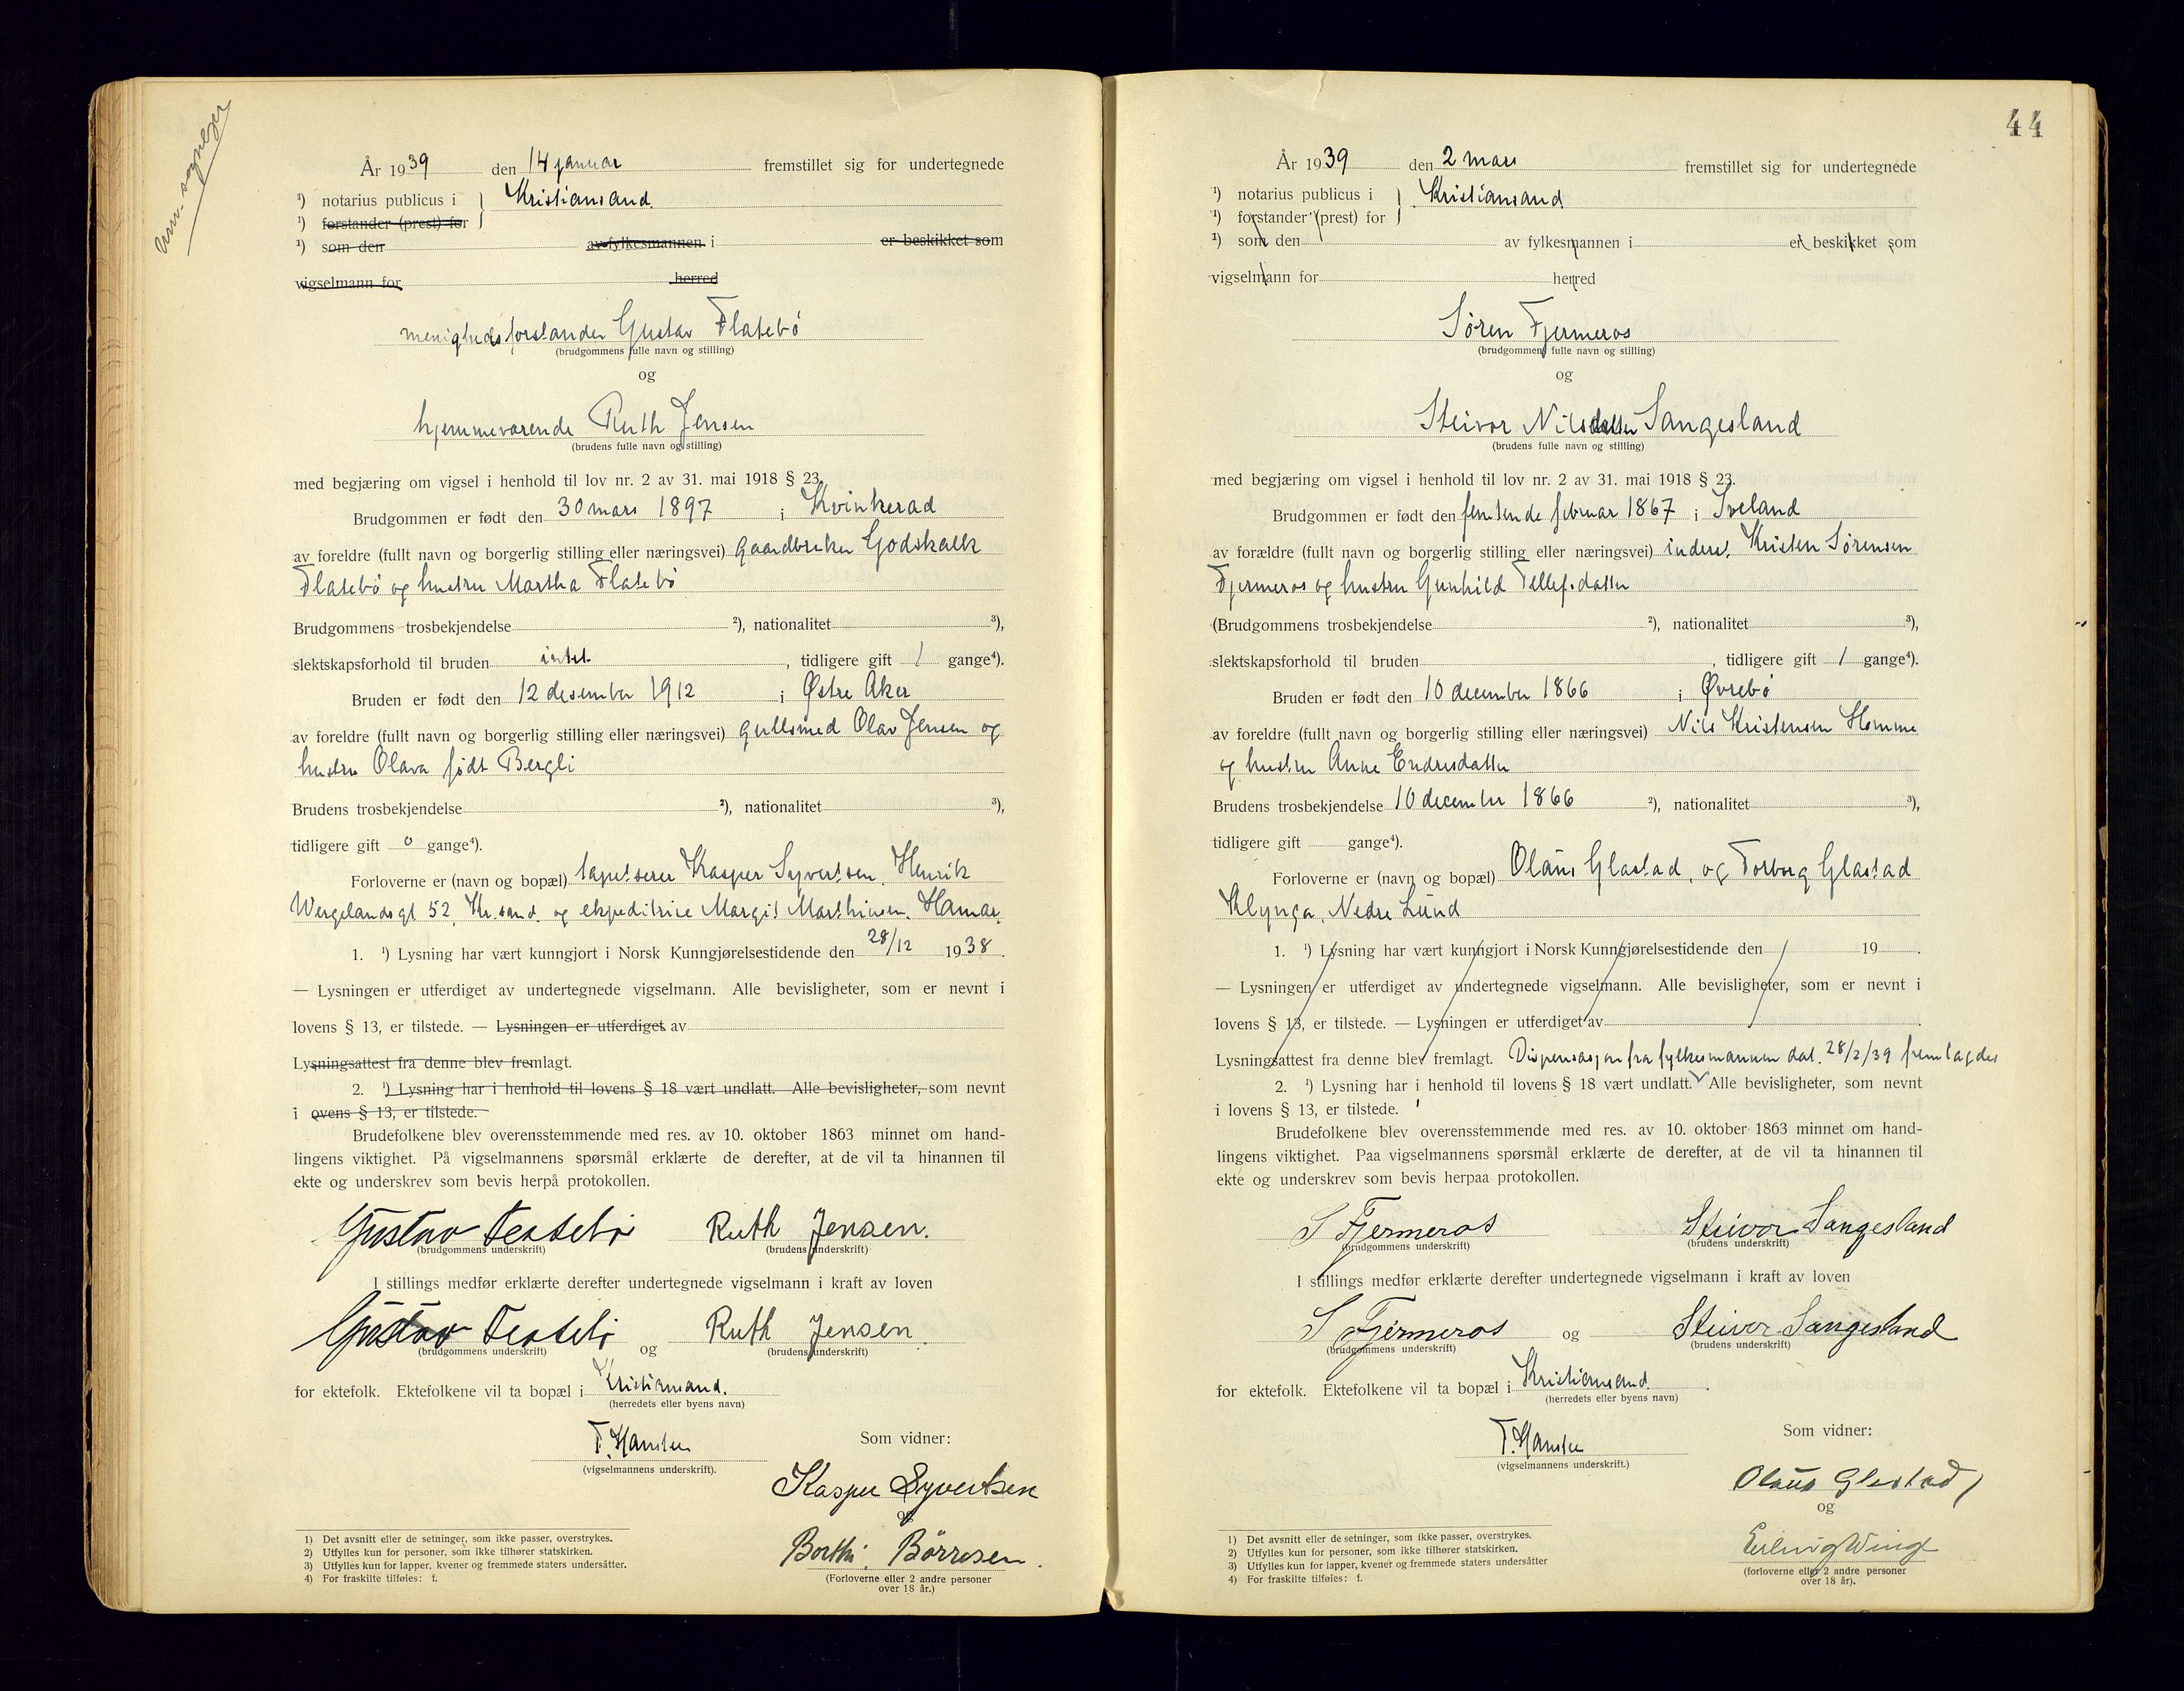 År 1939 den 14 januar fremstillet sig for undertegnede
¹) notarius publicus i } Kristiansand.
¹) forstander (prest) for
¹) som den av fylkesmannen i er beskikket som
vigselmann for herred
menighedsforstander Gustav Flatebö
(brudgommens fulle navn og stilling)
og
hjemmeværende Ruth Jensen
(brudens fulle navn og stilling)
med begjæring om vigsel i henhold til lov nr. 2 av 31. mai 1918 § 23.
Brudgommen er født den 30 mars 1897 i Kvinherad
av foreldre (fullt navn og borgerlig stilling eller næringsvei) gaardbruker Godskalk
Flatebö og hustru Martha Flatebö
Brudgommens trosbekjendelse ²), nationalitet ³),
slektskapsforhold til bruden intet , tidligere gift 1 gange⁴).
Bruden er født den 12 desember 1912 i Østre Aker
av foreldre (fullt navn og borgerlig stilling eller næringsvei) gullsmed Olav Jensen og
hustru Olava født Bergli
Brudens trosbekjendelse ²), nationalitet ³),
tidligere gift 0 gange⁴).
Forloverne er (navn og bopæl) tapetserer Kasper Syvertsen, Henrik
Wergelandsgt 52, Kr.sand. og ekspeditrice Margit Marthinsen, Hamar.
1. ¹) Lysning har vært kunngjort i Norsk Kunngjørelsestidende den 28/12 1938.
— Lysningen er utferdiget av undertegnede vigselmann. Alle bevisligheter, som er nevnt i
lovens § 13, er tilstede. — Lysningen er utferdiget av
Lysningsattest fra denne blev fremlagt.
2. ¹) Lysning har i henhold til lovens § 18 vært undlatt. Alle bevisligheter, som nevnt
i ovens § 13, er tilstede.
Brudefolkene blev overensstemmende med res. av 10. oktober 1863 minnet om hand-
lingens viktighet. På vigselmannens spørsmål erklærte de derefter, at de vil ta hinannen til
ekte og underskrev som bevis herpå protokollen.
Gustav Ruth Jensen.
(brudgommens underskrift) (brudens underskrift)
I stillings medfør erklærte derefter undertegnede vigselmann i kraft av loven
Gustav og Ruth Jensen.
(brudgommens underskrift) (brudens underskrift)
for ektefolk. Ektefolkene vil ta bopæl i Kristiansand.
(herredets eller byens navn)
T. Hansen
(vigselmannens underskrift).
Som vidner:
Kasper Syvertsen
og
Börresen.
(Forloverne eller 2 andre personer
over 18 år.)
1) Det avsnitt eller de setninger, som ikke passer, overstrykes.
2) Utfylles kun for personer, som ikke tilhører statskirken.
3) Utfylles kun for lapper, kvener og fremmede staters undersåtter.
4) For fraskilte tilføies: f.
44
År 1939 den 2 mars fremstillet sig for undertegnede
¹) notarius publicus i } Kristiansand
¹) forstander (prest) for
¹) som den av fylkesmannen i er beskikket som
vigselmann for herred
Sören Fjermeros
(brudgommens fulle navn og stilling)
og
Steivor Nilsdatter Sangesland
(brudens fulle navn og stilling)
med begjæring om vigsel i henhold til lov nr. 2 av 31. mai 1918 § 23.
Brudgommen er født den femtende februar 1867 i Iveland
av forældre (fullt navn og borgerlig stilling eller næringsvei) inders. Kristen Sörensen
Fjermeros og hustru Gunhild Tellefsdatter
(Brudgommens trosbekjendelse ²), nationalitet ³),
slektskapsforhold til bruden , tidligere gift 1 gange⁴).
Bruden er født den 10 december 1866 i Øvrebö
av foreldre (fullt navn og borgerlig stilling eller næringsvei) Nils Kristensen Homme
og hustru Anne Endresdatter
Brudens trosbekjendelse 10 december 1866 ²), nationalitet ³),
tidligere gift gange⁴).
Forloverne er (navn og bopæl) Olaus Glastad, og Torborg Glastad
Klynga, Nedre Lund
1. ¹) Lysning har vært kunngjort i Norsk Kunngjørelsestidende den / 19 .
— Lysningen er utferdiget av undertegnede vigselmann. Alle bevisligheter, som er nevnt i
lovens § 13, er tilstede. — Lysningen er utferdiget av
Lysningsattest fra denne blev fremlagt. Dispensasjon fra fylkesmannen dat. 28/2/39 fremlagdes
2. ¹) Lysning har i henhold til lovens § 18 vært undlatt. Alle bevisligheter, som nevnt
i lovens § 13, er tilstede.
Brudefolkene blev overensstemmende med res. av 10. oktober 1863 minnet om hand-
lingens viktighet. Paa vigselmannens spørsmål erklærte de derefter, at de vil ta hinannen til
ekte og underskrev som bevis herpaa protokollen.
S Fjermeros Steivor Sangesland
(brudgommens underskrift) (brudens underskrift)
I stillings medfør erklærte derefter undertegnede vigselmann i kraft av loven
S Fjermeros og Steivor Sangesland
(brudgommens underskrift) (brudens underskrift)
for ektefolk. Ektefolkene vil ta bopæl i Kristiansand.
(herredets eller byens navn)
T. Hansen
(vigselmannens underskrift.)
Som vidner:
Olaus Glastad
og
Erling Winge
(forloverne eller 2 andre personer
over 18 år).
1) Det avsnitt eller de setninger, som ikke passer, overstrykes.
2) Utfylles kun for personer, som ikke tilhører statskirken.
3) Utfylles kun for lapper, kvener og fremmede staters undersåtter
4) For fraskilte tilføies: f.